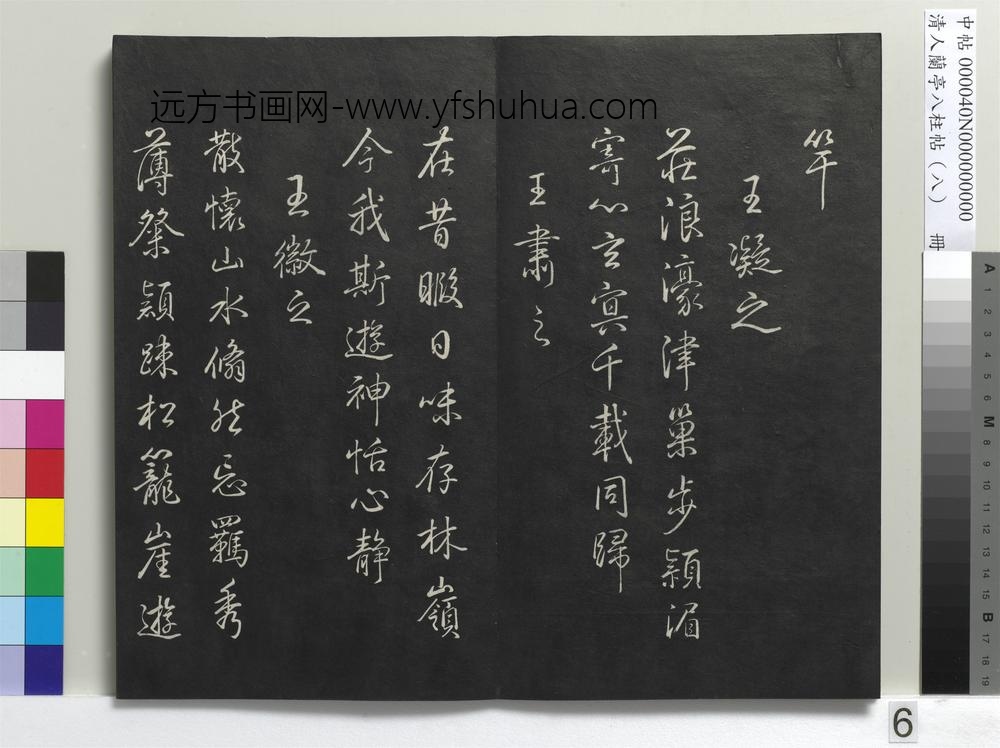 竿
王凝之
莊浪濠津巢步潁湄
寄心玄冥千載同歸
王肅之
在昔暇日味存林嶺
今我斯遊神恬心静
王徽之
散懷山水翛然忘羈秀
薄粲穎疎松籠崖遊
远方书画网-www.yfshuhua.com
中帖 000040N000000000
清人蘭亭八柱帖(八) 冊
A 1 2 3 4 5 6 M 8 9 10 11 12 13 14 15 B 17 18 19
6